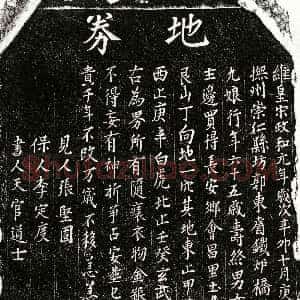 地券
維皇宋政和元年歲次辛卯十月
撫州崇仁縣坊郭東省鐵炉橋
九娘行年六十五歲壽終男
主邊買得長安鄉會昌里
艮山丁向地一穴其地東止甲
西止庚辛白虎北止壬癸玄武
古為界所有隨葬衣物金銀
不得妄有呵祈爭占安葬已
貴千年不改万歲不移急急
見人張堅固
保人李定度
書人天官道士